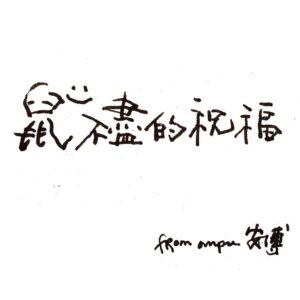 鼠不盡的祝福
from ampu 安溥